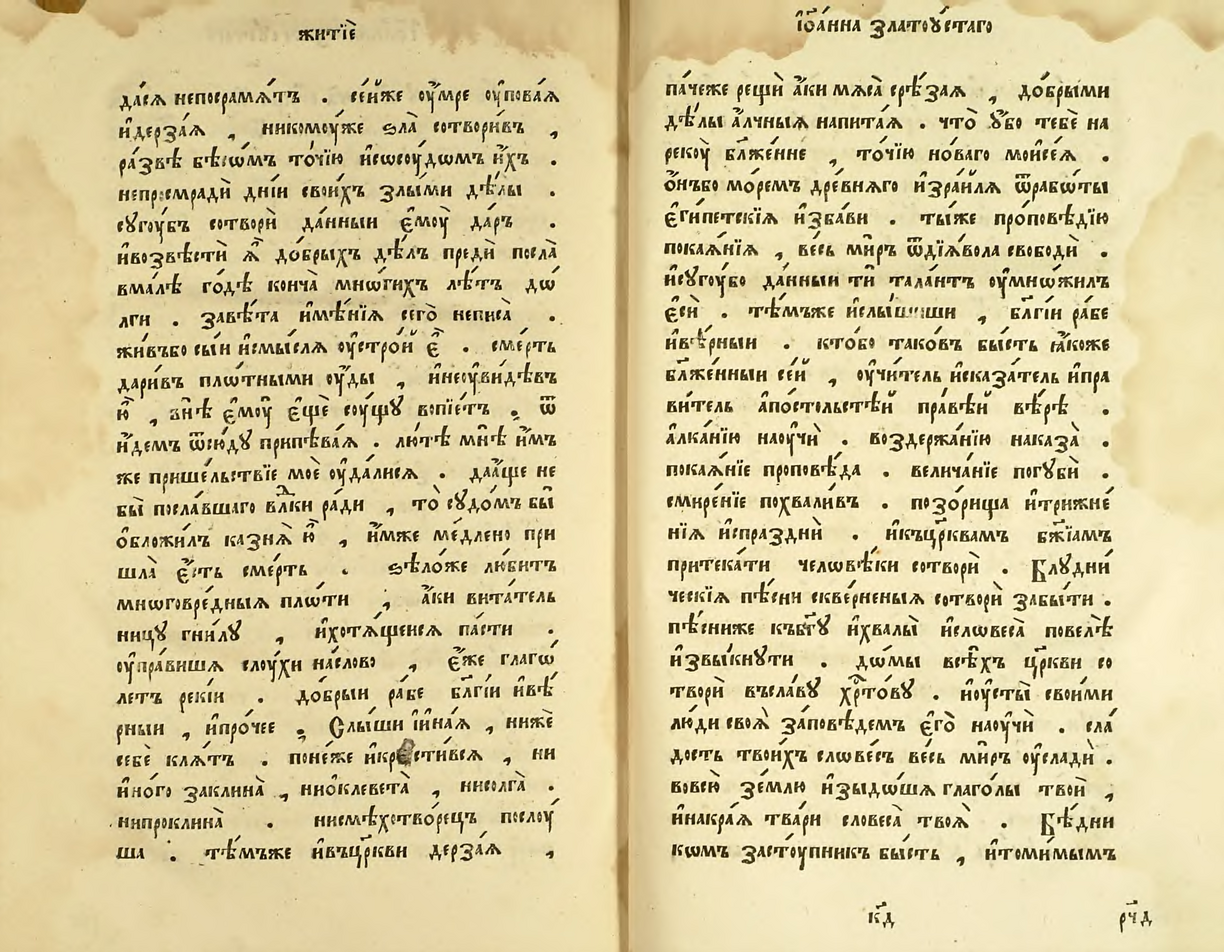 житїѐ
да́сѧ непосрамѧ́тъ . се́йже оу҆́мре оу҆пова́ѧ
и҆дерза́ѧ , никомоу́же ѕла̀ сотвори́въ ,
ра́звѣ бѣсѡ́мъ то́чїю и҆сосоу́дѡмъ и҆́хъ .
непросмради̇̀ дні́и свои́хъ злы́ми дѣ́лы .
сꙋгоу́бъ сотворѝ да́нныи є҆моу̀ да́ръ .
и҆возвѣстѝ ꙗ҆̀ до́брыхъ дѣ́лъ предѝ посла̀
вма́лѣ го́дѣ конча̀ мнѡ́гихъ лѣ́тъ дѡ
лги . завѣ́та и҆мѣ́нїѧ сего̀ неписа̀ .
жи́въбо сы́и и҆смы́слѧ оу҆стро́й є҆̀ . сме́рть
дари́въ плѡ́тными оу҆́ды , и҆неоу҆ви́дѣвъ
ю҆̀ , внѣ̀ є҆моу̀ є҆щѐ соу́щꙋ вопїе́тъ . ѿ
и҆́демъ ѿсю́дꙋ припѣва́ѧ . лю́тѣ мнѣ̀ и҆́мъ
же прише́льствїе моѐ оу҆дали́сѧ . даа҆́ще не
бы̀ посла́вшаго влⷣки ра́ди , то̀ сꙋдо́мъ бы̀
ѻ҆бложи́лъ казнѧ̀ ю҆̀ , и҆́мже ме́длено при
шла̀ є҆́сть сме́рть . ѕѣло́же лю́битъ
мнѡговре́дныѧ пло́ти , а҆́ки вита́тель
ницꙋ гни́лꙋ , и҆хотѧ́щеисѧ па́сти .
оу҆пра́вишѧ слоу́хи на́слово , є҆́же глаго́
летъ реки́и . до́брыи ра́бе бл҃гі́и и҆вѣ́
рныи , и҆про́чее . Слы́ши і҆и҆на́ѧ , нижѐ
себѐ клѧ́тъ . поне́же и҆крести́всѧ , ни
и҆но́го заклина̀ , ниѻ҆клевета̀ , нисолга̀ .
нипроклина̀ . нисмѣхотво́рецъ послоу́
ша . тѣ́мъже и҆въцр҃кви дерза́ѧ ,
і҆ѡа́нна златоꙋ́стаго
па́чеже рещѝ а҆́ки мѧса̀ срѣ́заѧ , до́брыми
дѣ́лы а҆́лчныѧ напита́ѧ . что̀ ᲂу҆́бо тебѐ на
рекоу̀ бл҃же́нне , то́чїю но́ваго мои́сеѧ .
ѻ҆́нъбо мо́ремъ дре́внѧго и҆зра́илѧ ѿрабѡ́ты
є҆ги́петскїѧ и҆зба́ви . ты́же про́повѣдїю
покаѧ́нїѧ , ве́сь ми́ръ ѿдїѧ́вола свободѝ .
и҆сꙋгоу́бо да́нныи тѝ тала́нтъ оу҆мно́жилъ
є҆сѝ . тѣ́мъже и҆слы́шиши , бл҃гі́и ра́бе
и҆вѣ́рныи . кто́бо тако́въ бы́сть ꙗ҆́коже
бл҃же́нныи се́й , оу҆чи́тель и҆сказа́тель и҆пра
ви́тель а҆по́стольстѣй пра́вѣй вѣ́рѣ .
а҆лка́нїю наоу҆чѝ . воздержа́нїю наказа̀ .
покаѧ́нїе проповѣ́да . велича́нїе погꙋбѝ .
смире́нїе похвали́въ . позо́рища и҆тризне́
нїѧ и҆спразднѝ . и҆къцр҃квамъ бж҃їамъ
притека́ти человѣ́ки сотворѝ . Блꙋдни́
ческїѧ пѣ́сни скве́рненыѧ сотворѝ забы́ти .
пѣ́сниже къбг҃ꙋ и҆хвалы̀ и҆словеса̀ повелѣ̀
и҆звы́кнꙋти . до́мы всѣ́хъ цр҃кви со
творѝ въсла́вꙋ хрⷭ҇то́вꙋ . и҆оу҆сты̀ свои́ми
лю́ди своѧ̀ за́повѣдемъ є҆го̀ наоу҆чѝ . сла́
дость твои́хъ слове́съ ве́сь ми́ръ оу҆сладѝ .
вовсю̀ зе́млю и҆зыдо́шѧ глаго́лы твоѝ ,
и҆накра́ѧ тва́ри словеса̀ твоѧ̀ . Бѣ́дни
кѡмъ засто́упникъ бы́сть , и҆томи́мымъ
к҃д
рч҃д